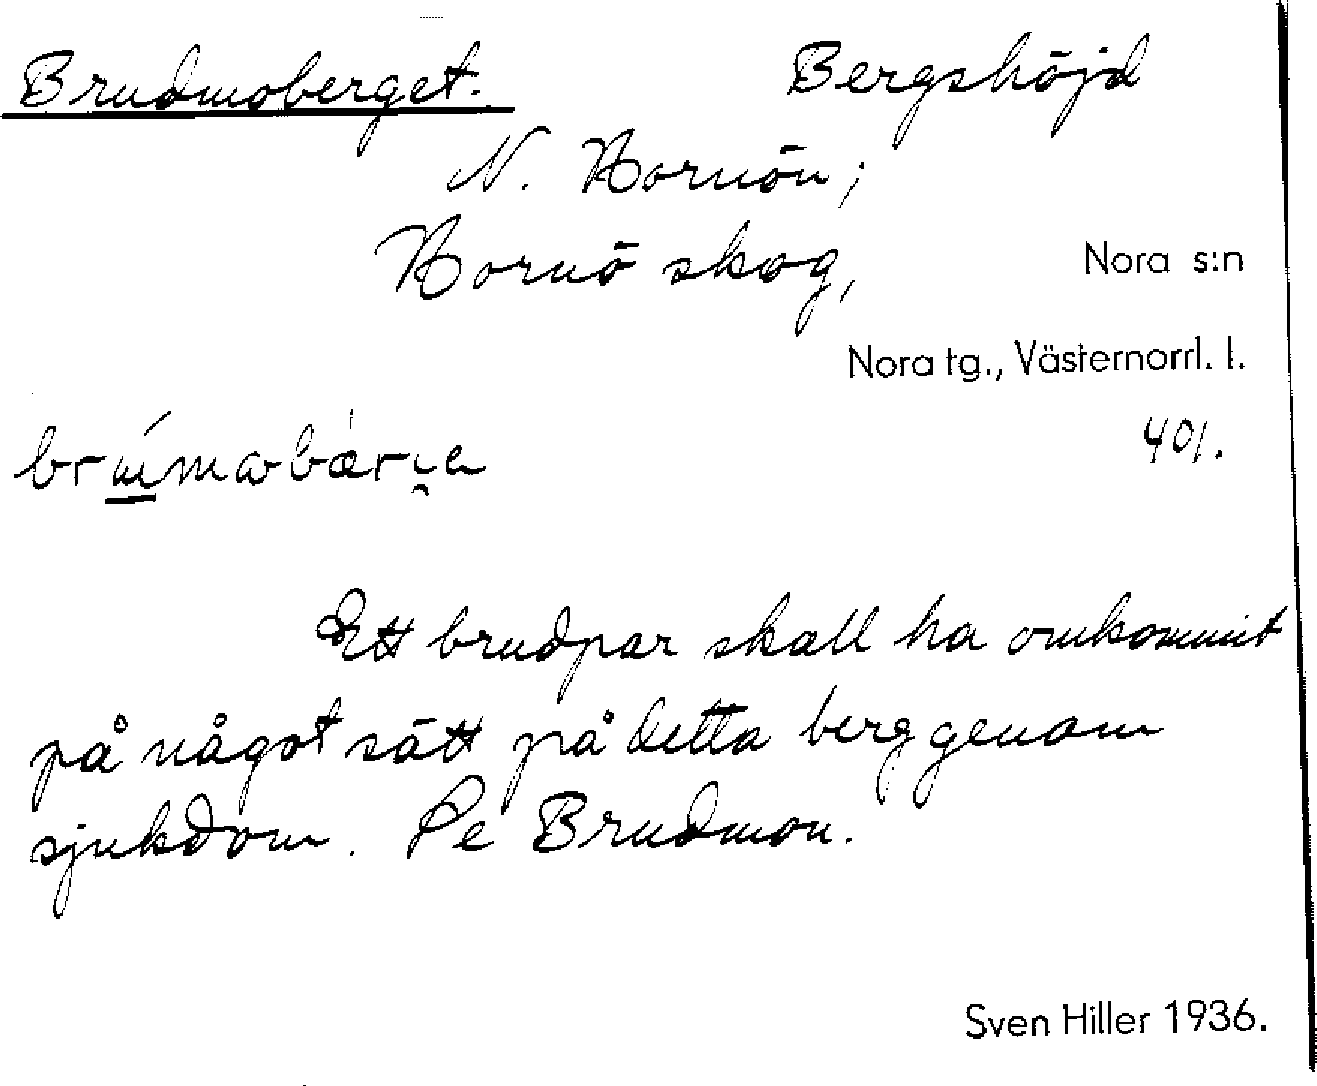 Brudmoberget. Bergshöjd
N. Hornön;
Hornö skog, Nora s:n
Nora tg., Västernorrl. l.
401.
Ett brudpar skall ha omkommit
på något sätt på detta berg genom
sjukdom. Se Brudmon.
Sven Hiller 1936.